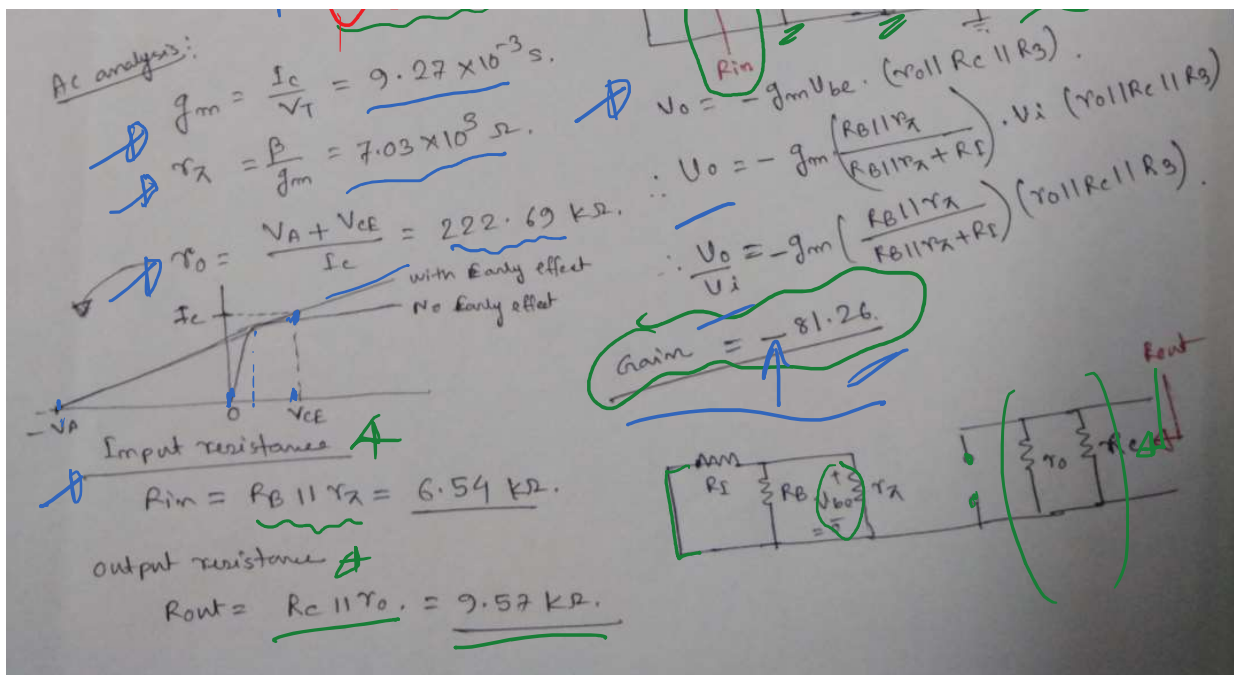 Ac analysis:
gm = Ic / VT = 9.27 × 10⁻³ s.
rπ = β / gm = 7.03 × 10³ Ω.
ro = VA + VCE / Ic = 222.69 kΩ.
with Early effect
No Early effect
Ic
-VA
0
VCE
Input resistance
Rin = RB || rπ = 6.54 kΩ.
output resistance
Rout = Rc || ro. = 9.57 kΩ.
Rin
Vo = -gm Vbe · (ro || Rc || R3).
∴ Vo = -gm (RB || rπ / RB || rπ + RI) · Vi (ro || Rc || R3)
∴ Vo / Vi = -gm (RB || rπ / RB || rπ + RI) (ro || Rc || R3).
Gain = -81.26.
Rout
RI
RB
+
Vbe
-
rπ
ro
Rc